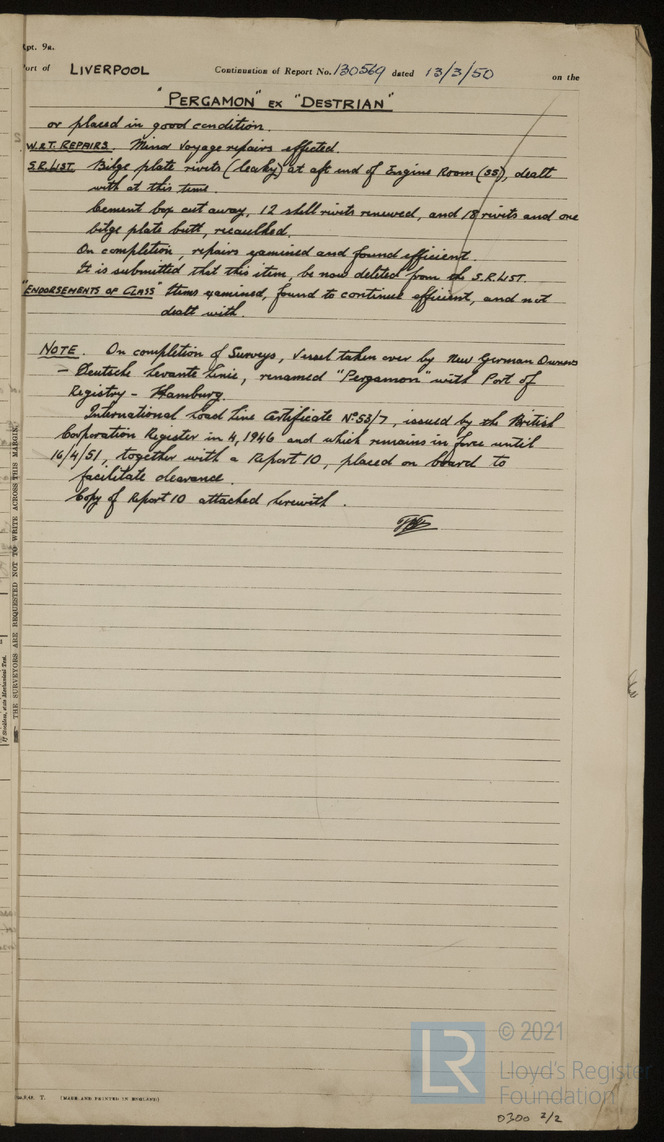 Rpt. 9a.
Port of LIVERPOOL Continuation of Report No. 130569 dated 13/3/50 on the
"PERGAMON" EX "DESTRIAN"
or placed in good condition.
W.&T. REPAIRS. Minor voyage repairs effected.
S.R. LIST. Bilge plate rivets (leaky) at aft end of Engine Room (SS), dealt
with at this time.
Cement box cut away, 12 shell rivets renewed, and 18 rivets and one
bilge plate butt, recaulked.
On completion, repairs examined and found efficient.
It is submitted that this item, be now deleted from the S.R. LIST.
"ENDORSEMENTS OF CLASS" Items examined, found to continue efficient, and not
dealt with.
NOTE. On completion of Surveys, Vessel taken over by New German Owners
- Deutsche Levante Linie, renamed "Pergamon" with Port of
Registry - Hamburg.
International Load Line Certificate No 53/7, issued by the British
Corporation Register in 4, 1946 and which remains in force until
16/4/51, together with a Report 10, placed on board to
facilitate clearance.
Copy of Report 10 attached herewith.
THE SURVEYORS ARE REQUESTED NOT TO WRITE ACROSS THIS MARGIN.
T. (MADE AND PRINTED IN ENGLAND)
LR
© 2021
Lloyd's Register
Foundation
0300 2/2